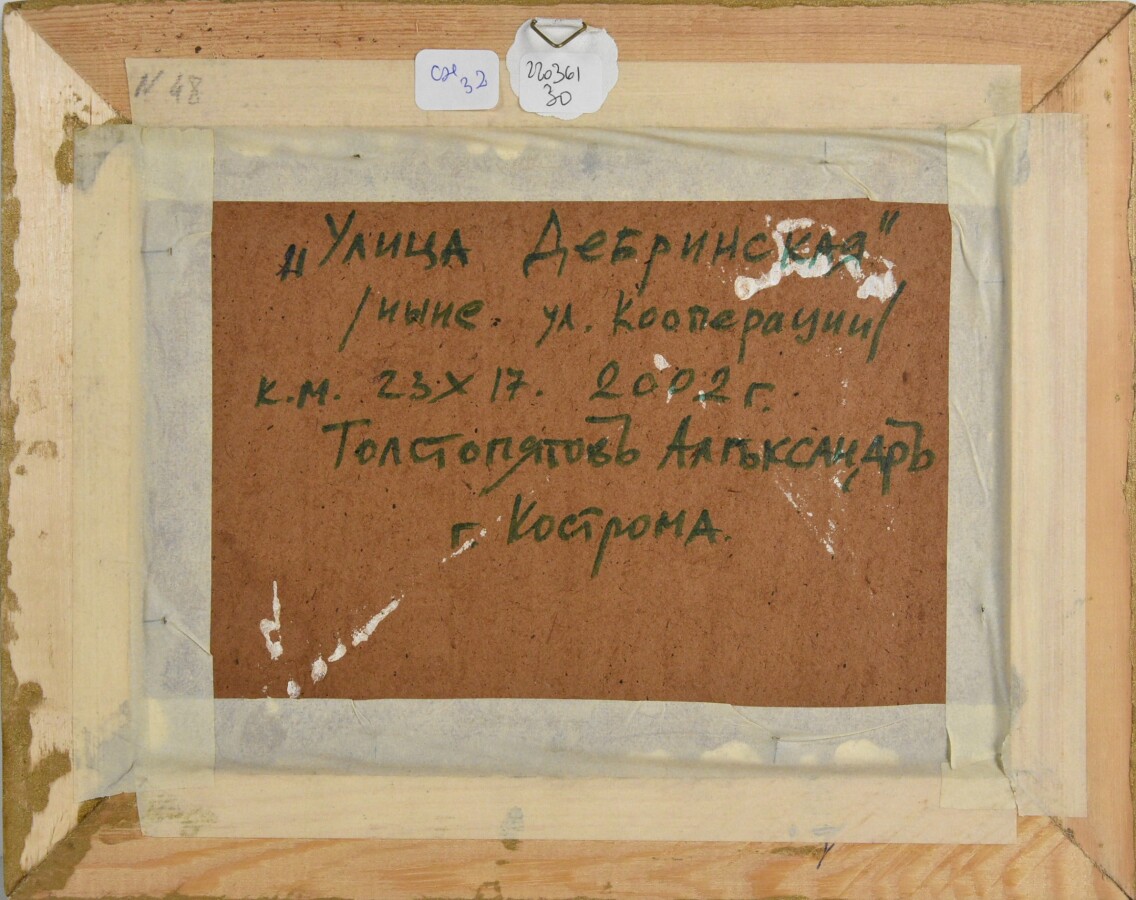 N 48
сн 32
220361
30
„Улица Дебринская"
/ныне. ул. Кооперации/
к.м. 23х17. 2002 г.
Толстопятовъ Алѣксандръ
г. Кострома.